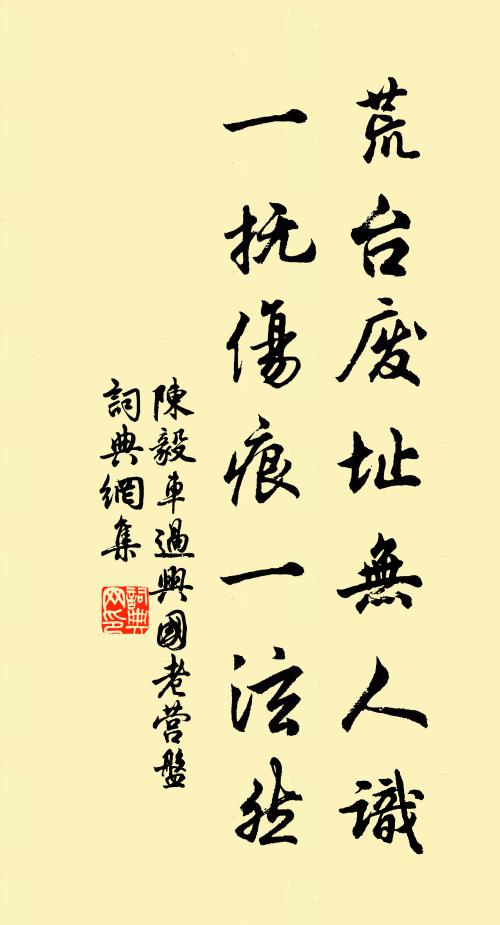 荒台废址無人識
一抚傷痕一泫然
陳毅車過興國老营盤
詞典網集
詞典网印